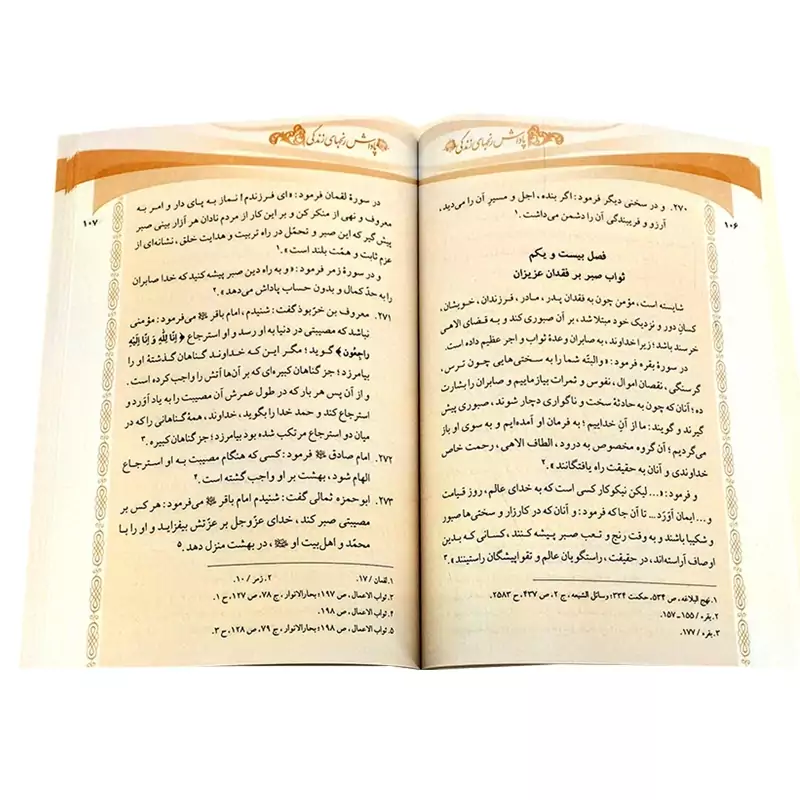 پاداش رنجهای زندگی
۱۰۶
۲۷۰. و در سخنی دیگر فرمود: اگر بنده، اجل و مسیرِ آن را می‌دید،
آرزو و فریبندگی آن را دشمن می‌داشت.۱
فصل بیست و یکم
ثواب صبر بر فقدان عزیزان
شایسته است، مؤمن چون به فقدان پدر، مادر، فرزندان، خویشان،
کسانِ دور و نزدیک خود مبتلا شد، بر آن صبوری کند و به قضای الاهی
خرسند باشد؛ زیرا خداوند، به صابران وعدهٔ ثواب و اجر عظیم داده است.
در سورهٔ بقره فرمود: «و البتّه شما را به سختی‌هایی چون ترس،
گرسنگی، نقصان اموال، نفوس و ثمرات بیازماییم و صابران را بشارت
ده؛ آنان که چون به حادثهٔ سخت و ناگواری دچار شوند، صبوری پیش
گیرند و گویند: ما از آنِ خداییم؛ به فرمان او آمده‌ایم و به سوی او باز
می‌گردیم؛ آن گروه مخصوص به درود، الطاف الاهی، رحمت خاص
خداوندی و آنان به حقیقت راه یافتگانند».۲
و فرمود: «... لیکن نیکوکار کسی است که به خدای عالم، روز قیامت
و... ایمان آوَرَد... تا آن جا که فرمود: و آنان که در کارزار و سختی‌ها صبور
و شکیبا باشند و به وقت رنج و تعب صبر پیشه کنند، کسانی که بدین
اوصاف آراسته‌اند، در حقیقت، راستگویان عالم و تقوا پیشگان راستینند».۳
۱. نهج البلاغه، ص ۵۳۴، حکمت ۳۳۴؛ وسائل الشیعه، ج ۲، ص ۴۳۷، ح ۲۵۸۳.
۲. بقره / ۱۵۵ ـ ۱۵۷.
۳. بقره / ۱۷۷.
پاداش رنجهای زندگی
۱۰۷
در سورهٔ لقمان فرمود: «ای فرزندم! نماز به پای دار و امر به
معروف و نهی از منکر کن و بر این کار از مردم نادان هر آزار بینی صبر
پیش گیر که این صبر و تحمّل در راه تربیت و هدایت خلق، نشانه‌ای از
عزم ثابت و همّت بلند است».۱
و در سورهٔ زمر فرمود: «و به راه دین صبر پیشه کنید که خدا صابران
را به حدّ کمال و بدون حساب پاداش می‌دهد».۲
۲۷۱. معروف بن خَرَّبوذ گفت: شنیدم، امام باقر ﷺ می‌فرمود: مؤمنی
نباشد که مصیبتی در دنیا به او رسد و او استرجاع ﴿ إنّا لِلّهِ وَ إنّا إلَيْهِ
راجِعُون ﴾ گوید؛ مگر این که خداوند گناهان گذشتهٔ او را
بیامرزد؛ جز گناهان کبیره‌ای که بر آن‌ها آتش را واجب کرده است.
و از آن پس هر بار که در طول عمرش آن مصیبت را به یاد آوَرَد و
استرجاع کند و حمد خدا را بگوید، خداوند، همهٔ گناهانی را که در
میان دو استرجاع مرتکب شده بود بیامرزد؛ جز گناهان کبیره.۳
۲۷۲. امام صادق فرمود: کسی که هنگام مصیبت به او استرجاع
الهام شود، بهشت بر او واجب گشته است.۴
۲۷۳. ابوحمزه ثمالی گفت: شنیدم امام باقر می‌فرمود: هر کس بر
مصیبتی صبر کند، خدای عزّوجل بر عزّتش بیفزاید و او را با
محمّد و اهل‌بیت او، در بهشت منزل دهد.۵
۱. لقمان / ۱۷. ۲. زمر / ۱۰.
۳. ثواب الاعمال، ص ۱۹۷؛ بحارالانوار، ج ۷۸، ص ۱۲۷، ح ۱.
۴. ثواب الاعمال، ص ۱۹۸.
۵. ثواب الاعمال، ص ۱۹۸؛ بحارالانوار، ج ۷۹، ص ۱۲۸، ح ۳.